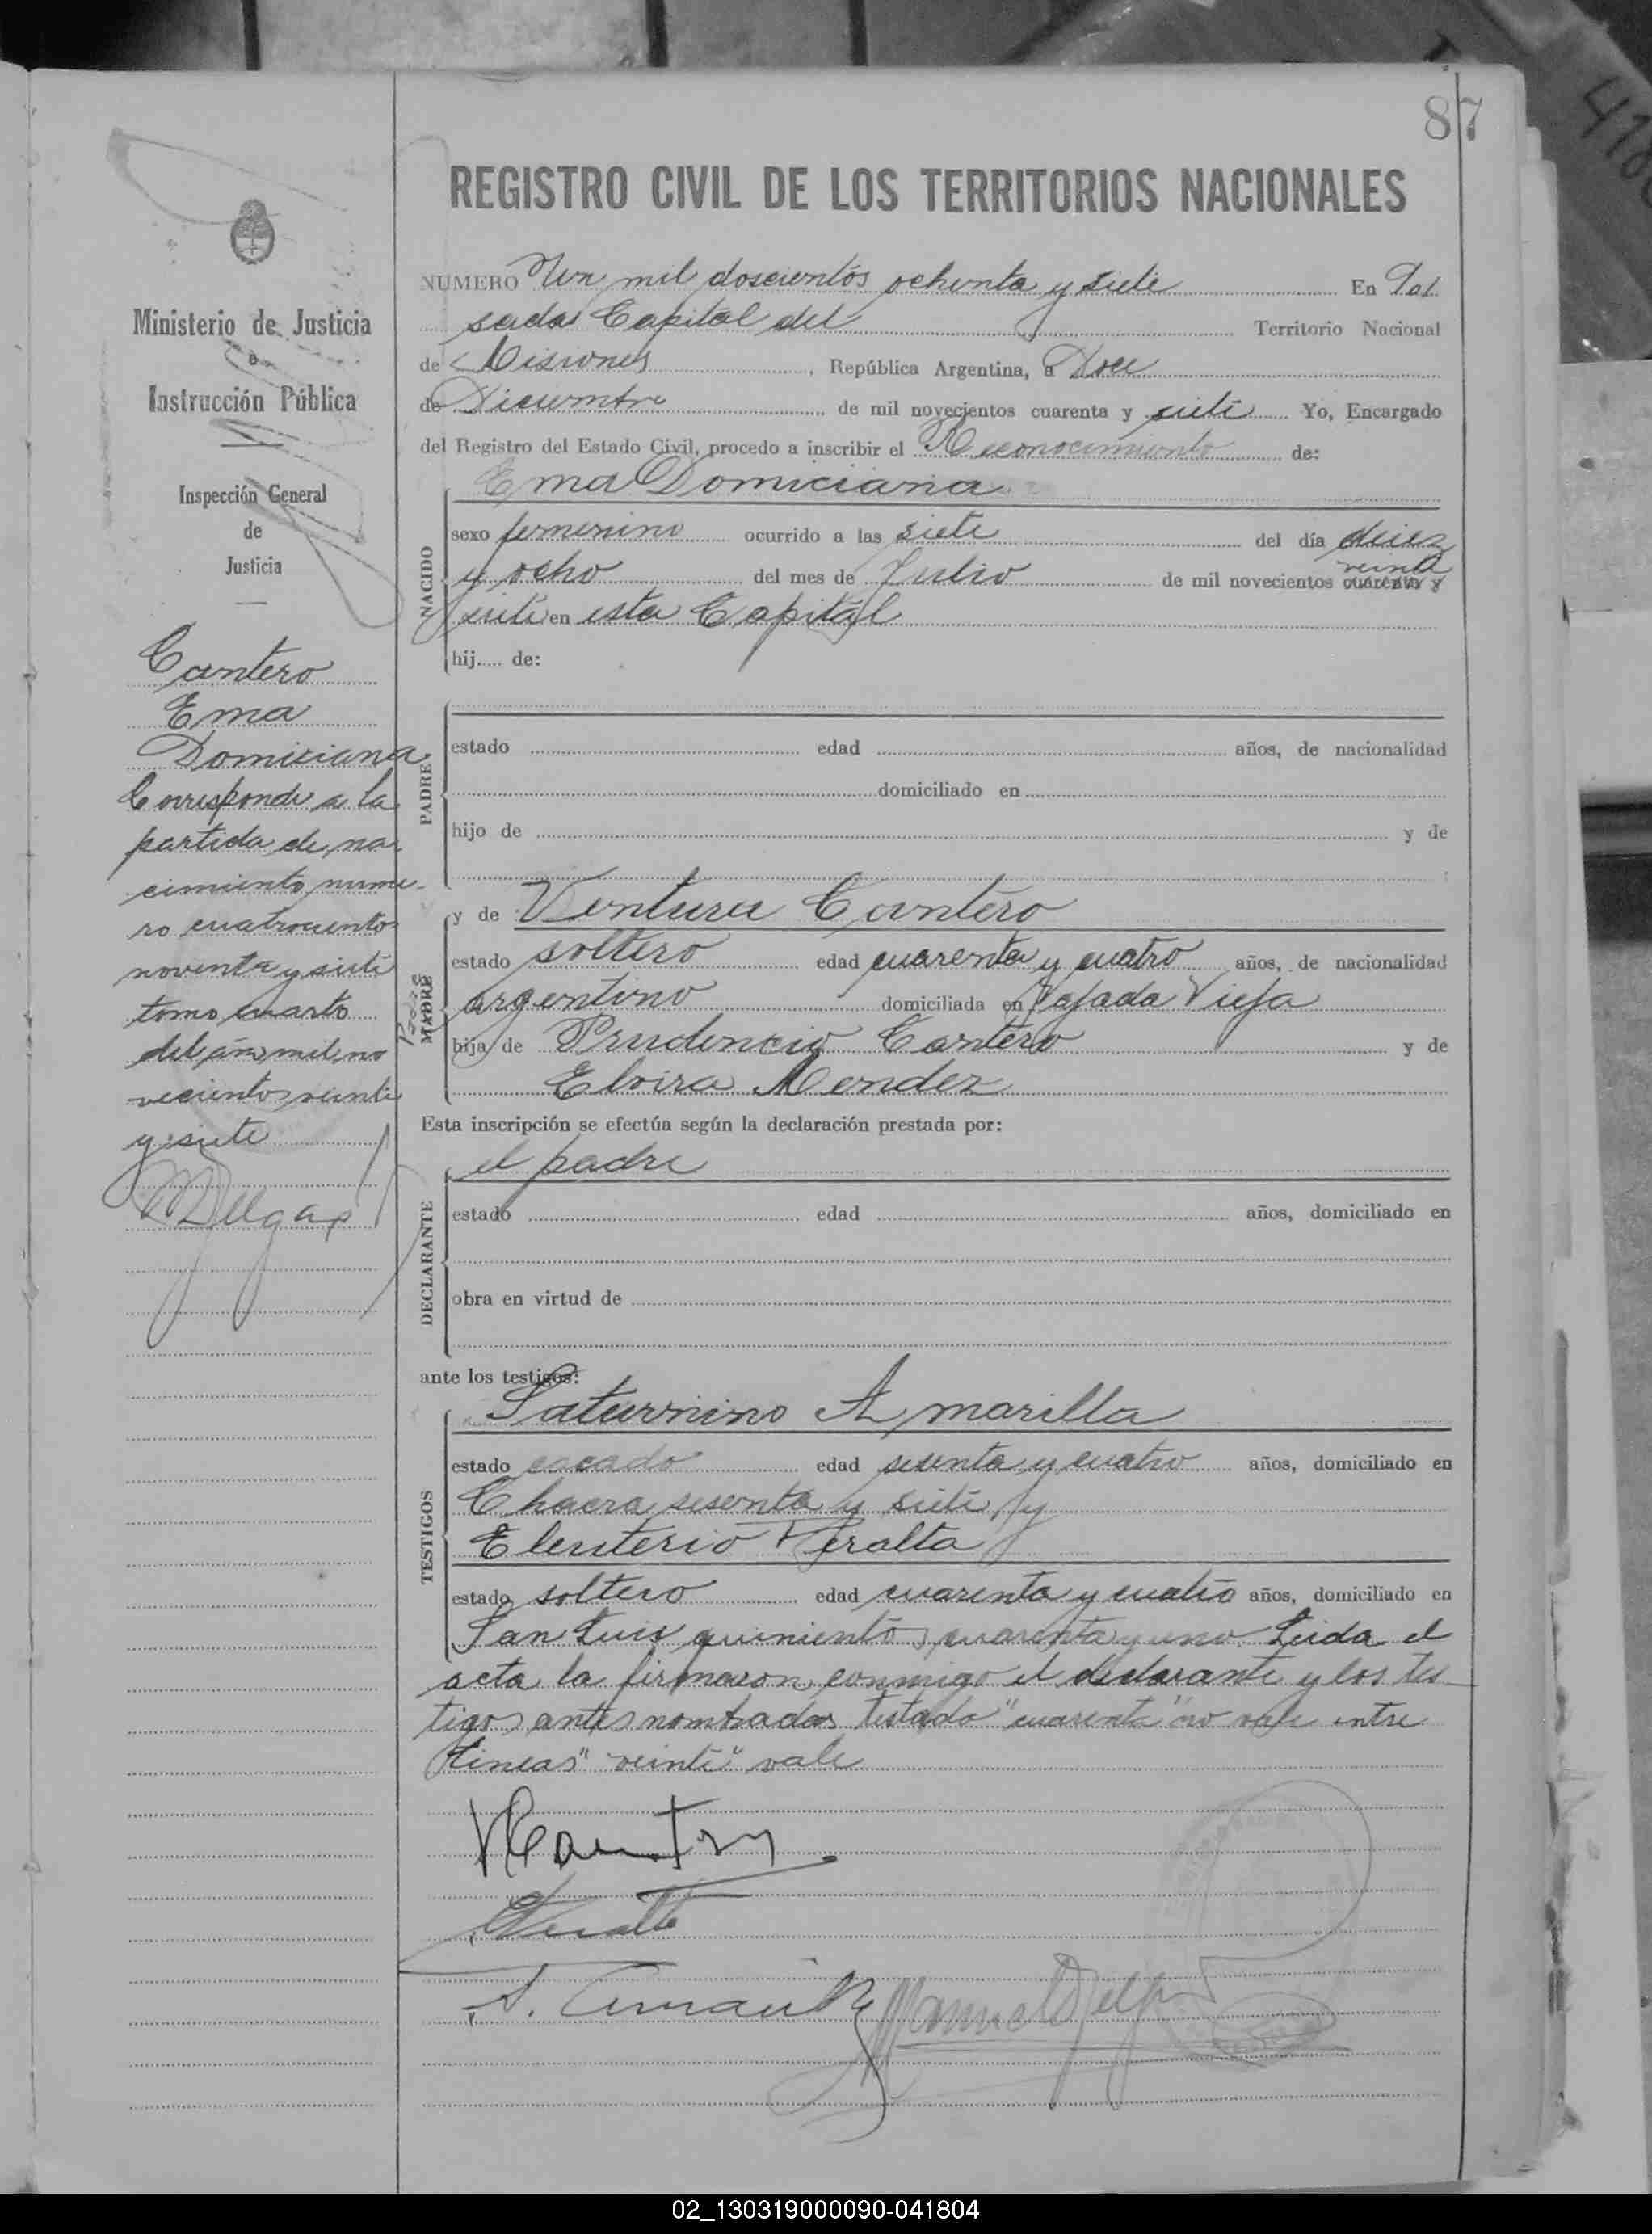 87
REGISTRO CIVIL DE LOS TERRITORIOS NACIONALES
Ministerio de Justicia
e
Instrucción Pública
Inspección General
de
Justicia
Cantero
Ema
Domiciana
Corresponde a la
partida de na-
cimiento nume-
ro cuatrocientos
noventa y siete
tomo cuarto
del año mil no
vecientos veinti
y siete
NUMERO Un mil doscientos ochenta y siete En Po
sadas Capital del Territorio Nacional
de Misiones, República Argentina, a Doce
de Diciembre de mil novecientos cuarenta y siete Yo, Encargado
del Registro del Estado Civil, procedo a inscribir el Reconocimiento de:
Ema Domiciana
NACIDO
sexo femenino ocurrido a las siete del día diez
y ocho del mes de Julio de mil novecientos cuarenta y
veinti
siete en esta Capital
hij..... de:
PADRE
estado edad años, de nacionalidad
domiciliado en
hijo de y de
Padre
MADRE
y de Ventura Cantero
estado soltero edad cuarenta y cuatro años, de nacionalidad
argentino domiciliada en Bajada Vieja
hija de Prudencio Cantero y de
Elvira Mendez
Esta inscripción se efectúa según la declaración prestada por:
el padre
DECLARANTE
estado edad años, domiciliado en
obra en virtud de
ante los testigos:
TESTIGOS
Saturnino Amarilla
estado casado edad sesenta y cuatro años, domiciliado en
Chacra sesenta y siete, y
Eleuterio Peralta
estado soltero edad cuarenta y cuatro años, domiciliado en
San Luis quinientos cuarenta y uno. Leida el
acta la firmaron conmigo el declarante y los tes-
tigos antes nombrados testado "cuarenta" no vale entre
lineas "veinti" vale
02_130319000090-041804